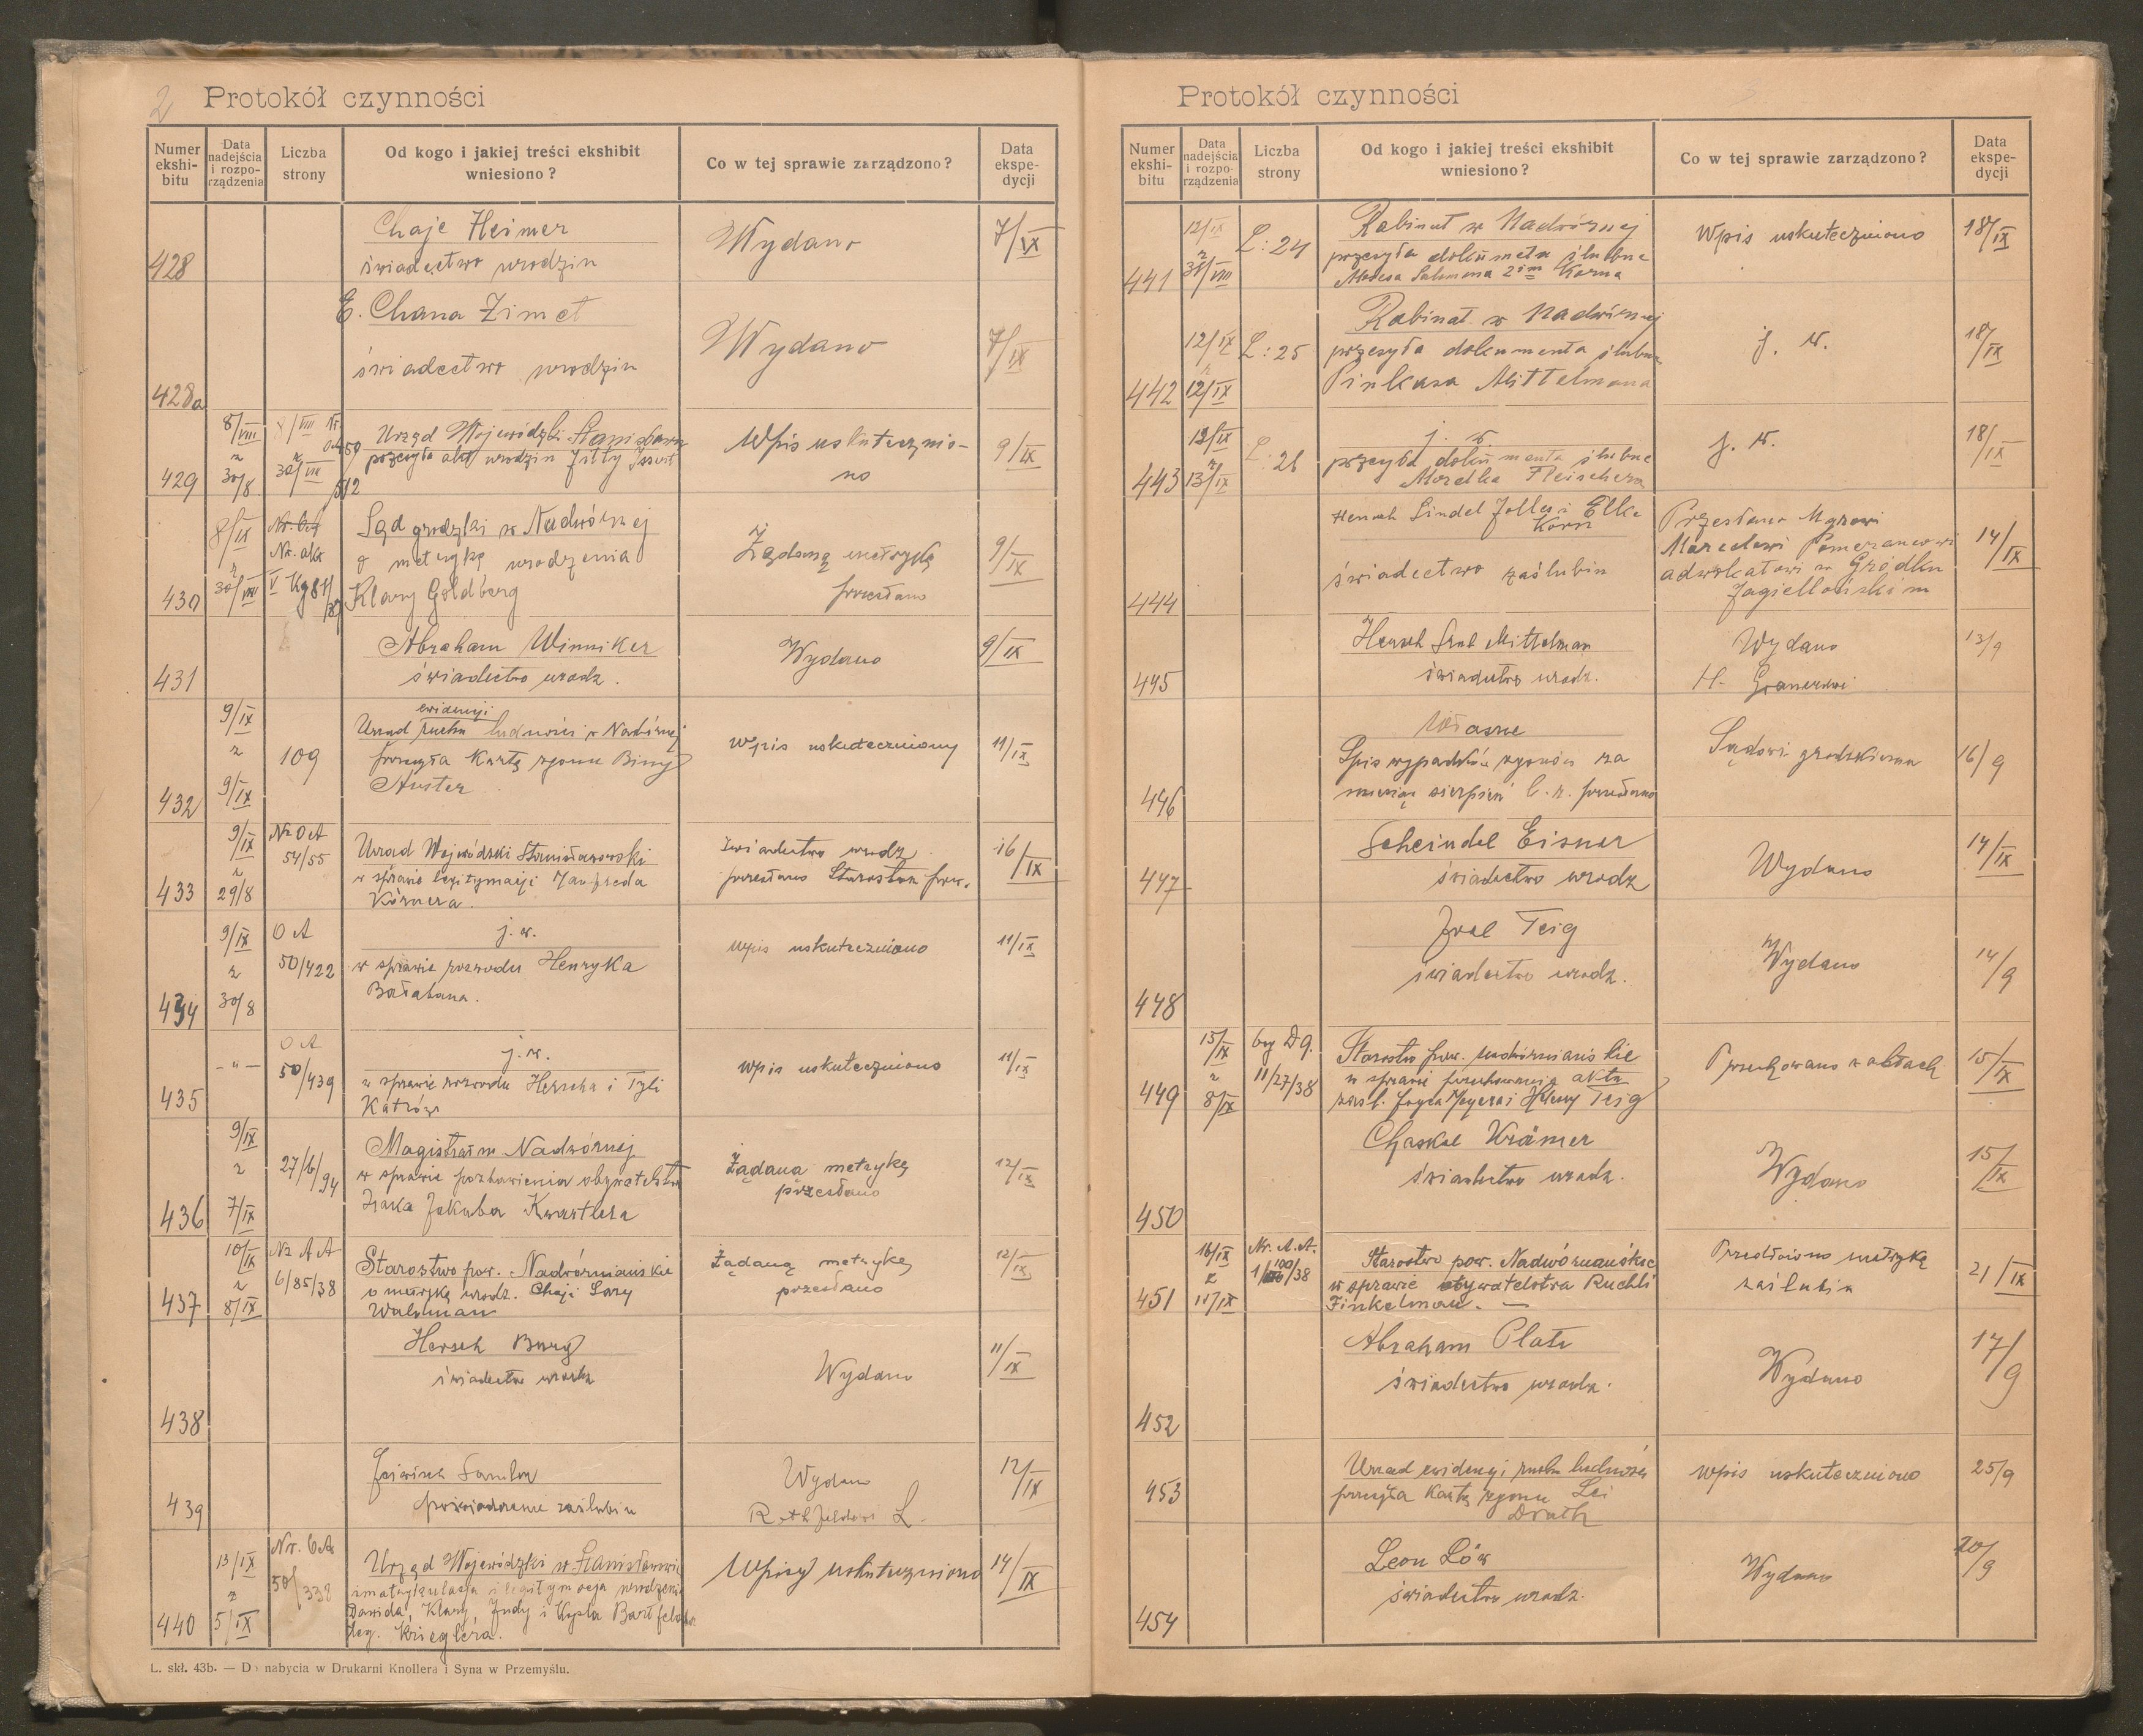 2 Protokół czynności
Numer ekshi-bitu
Data nadejścia i rozpo-rządzenia
Liczba strony
Od kogo i jakiej treści ekshibit wniesiono?
Co w tej sprawie zarządzono?
Data ekspe-dycji
Chaje Heimer
428 świadectwo urodzin Wydano 7/IX
E. Chana Zimet
świadectwo urodzin Wydano 7/IX
428a
8/VIII Urząd Wojewódzki Stanisław
z przesyła akt urodzin Wpis uskutecznio-
429 30/8 no 9/IX
8/IX Sąd grodzki w Nadwórnej
z Nr. akt o metrykę urodzenia Żądaną metrykę
430 30/VIII V Kg 81/ Klary Goldberg przesłano 9/IX
Abraham Winniker
431 świadectwo urodz. Wydano 9/IX
ewidencji
9/IX Urząd ruchu ludności w Nadwórnej
z 109 przesyła Kartę zgonu Biny Wpis uskuteczniony 11/IX
432 9/IX Auster
9/IX Nr OA
54/55 Urząd Wojewódzki Stanisławowski Świadectwo urodz.
z w sprawie legitymacji Manfreda przesłano Starostwu pow. 16/IX
433 29/8 Körnera.
9/IX OA j. w.
z 50/422 w sprawie rozwodu Henryka Wpis uskuteczniono 11/IX
434 30/8 Bałabana.
OA j. w.
- " - 50/439 w sprawie rozwodu Herscha i Tyli Wpis uskuteczniono 11/IX
435 Katzów
9/IX Magistrat w Nadwórnej
z 27/6/94 w sprawie pozbawienia obywatelstwa Żądana metrykę 12/IX
436 7/IX Izaka Jakuba Kwartlera przesłano
10/IX Nr AA Starostwo pow. Nadwórniańskie Żądaną metrykę 12/IX
z 6/85/38 o metrykę urodz. Chaji Sary przesłano
437 8/IX Waldman
Hersch Burg
świadectwo urodz Wydano 11/IX
438
Wydano 12/IX
439 poświadczenie zaślubin L.
13/IX Nr. OA Urząd Wojewódzki w Stanisławowie
z 50/332 imatrykulacja i legitymacja urodzenia Wpisy uskuteczniono 14/IX
Dawida, Klary, Judy i
440 5/IX leg. Krieglera.
L. skł. 43b. — Do nabycia w Drukarni Knollera i Syna w Przemyślu.
Protokół czynności
Numer ekshi-bitu
Data nadejścia i rozpo-rządzenia
Liczba strony
Od kogo i jakiej treści ekshibit wniesiono?
Co w tej sprawie zarządzono?
Data ekspe-dycji
12/IX Rabinat w Nadwórnej
z L: 24 przesyła dokumeta ślubne Wpis uskuteczniono 18/IX
441 31/VIII Korna
Rabinat w Nadwórnej
12/IX L: 25 przesyła dokumenta ślubne j. w. 18/IX
z
442 12/IX Pinkasa Mittelmana
12/IX j. w.
z L: 26 przesyła dokumenta ślubne j. w. 18/IX
443 13/IX Mordka Fleischera
Henoch Sindel Joller i Elke Korn
Przesłano Mgrowi
Marcelowi Pomeranzowi
świadectwo zaślubin adwokatowi w Gródku 14/IX
444 Jagiellońskim
Hersch Srul Mittelman Wydano 13/9
445 świadectwo urodz. H. Granerowi
Własne
Spis wypadków zgonów za Sądowi grodzkiemu 16/9
446 miesiąc sierpień b. r. przesłano
Scheindel Eisner
447 świadectwo urodz Wydano 14/IX
Israel Teig
świadectwo urodz. Wydano 14/9
448
15/IX Starostwo pow. nadwórniańskie
z 11/27/38 w sprawie przechowania akta Przechowano w aktach 15/IX
449 8/IX Meyera i Heleny Teig
Chaskel Krämer
świadectwo urodz. Wydano 15/IX
450
16/IX Nr. A.A. Starostwo pow. Nadwórniańskie Przedłożono metrykę
z 1/100/38 w sprawie obywatelstwa Ruchli zaślubin 21/IX
451 15/IX Finkelman. —
Abraham Platz
świadectwo urodz. Wydano 17/9
452
Urząd ewidencji ruchu ludności
453 przesyła Kartę zgonu Lei Wpis uskuteczniono 25/9
Drath
Leon Löw
świadectwo urodz. Wydano 20/9
454